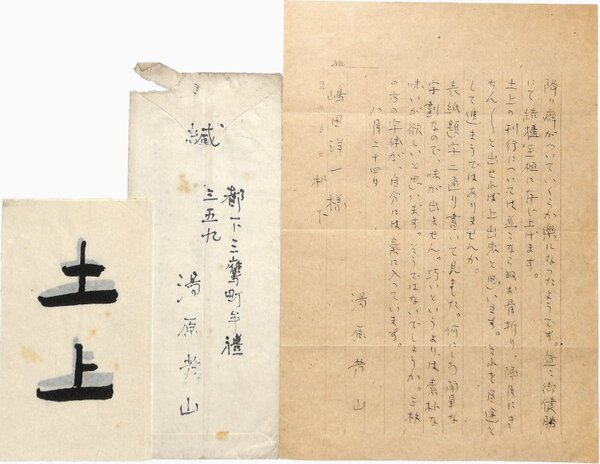 降り癖がついていくらか楽になったようです。益〻御健勝
にて結構至極に存じ上げます。
土上の刊行については並々ならぬお骨折り、隔月にき
ちん〱と出せれば上出来と思います。それを目途と
して進まうではありませんか。
表紙題字二通り書いて見ました。何にしろ簡単な
字劃なので、味が出ません。巧いというよりは素朴な
味いが欲しいと思います。そうではないでしょうか。
の方の字体が、自分には気に入っています。
八月二十四日
湯原芳山
嶋田洋一様
机下
No.
緘
都下三鷹町牟禮
三五九
湯原芳山
土上